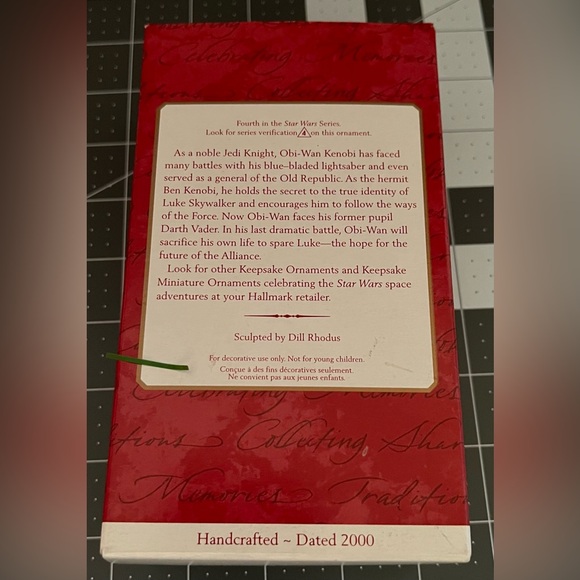 Celebrating Memories
Collecting
Fourth in the Star Wars Series.
Look for series verification 4 on this ornament.
As a noble Jedi Knight, Obi-Wan Kenobi has faced
many battles with his blue–bladed lightsaber and even
served as a general of the Old Republic. As the hermit
Ben Kenobi, he holds the secret to the true identity of
Luke Skywalker and encourages him to follow the ways
of the Force. Now Obi-Wan faces his former pupil
Darth Vader. In his last dramatic battle, Obi-Wan will
sacrifice his own life to spare Luke—the hope for the
future of the Alliance.
Look for other Keepsake Ornaments and Keepsake
Miniature Ornaments celebrating the Star Wars space
adventures at your Hallmark retailer.
Sculpted by Dill Rhodus
For decorative use only. Not for young children.
Conçue à des fins décoratives seulement.
Ne convient pas aux jeunes enfants.
Celebrating Memories
itions Collecting Shar
Memories Tradition
Handcrafted ~ Dated 2000